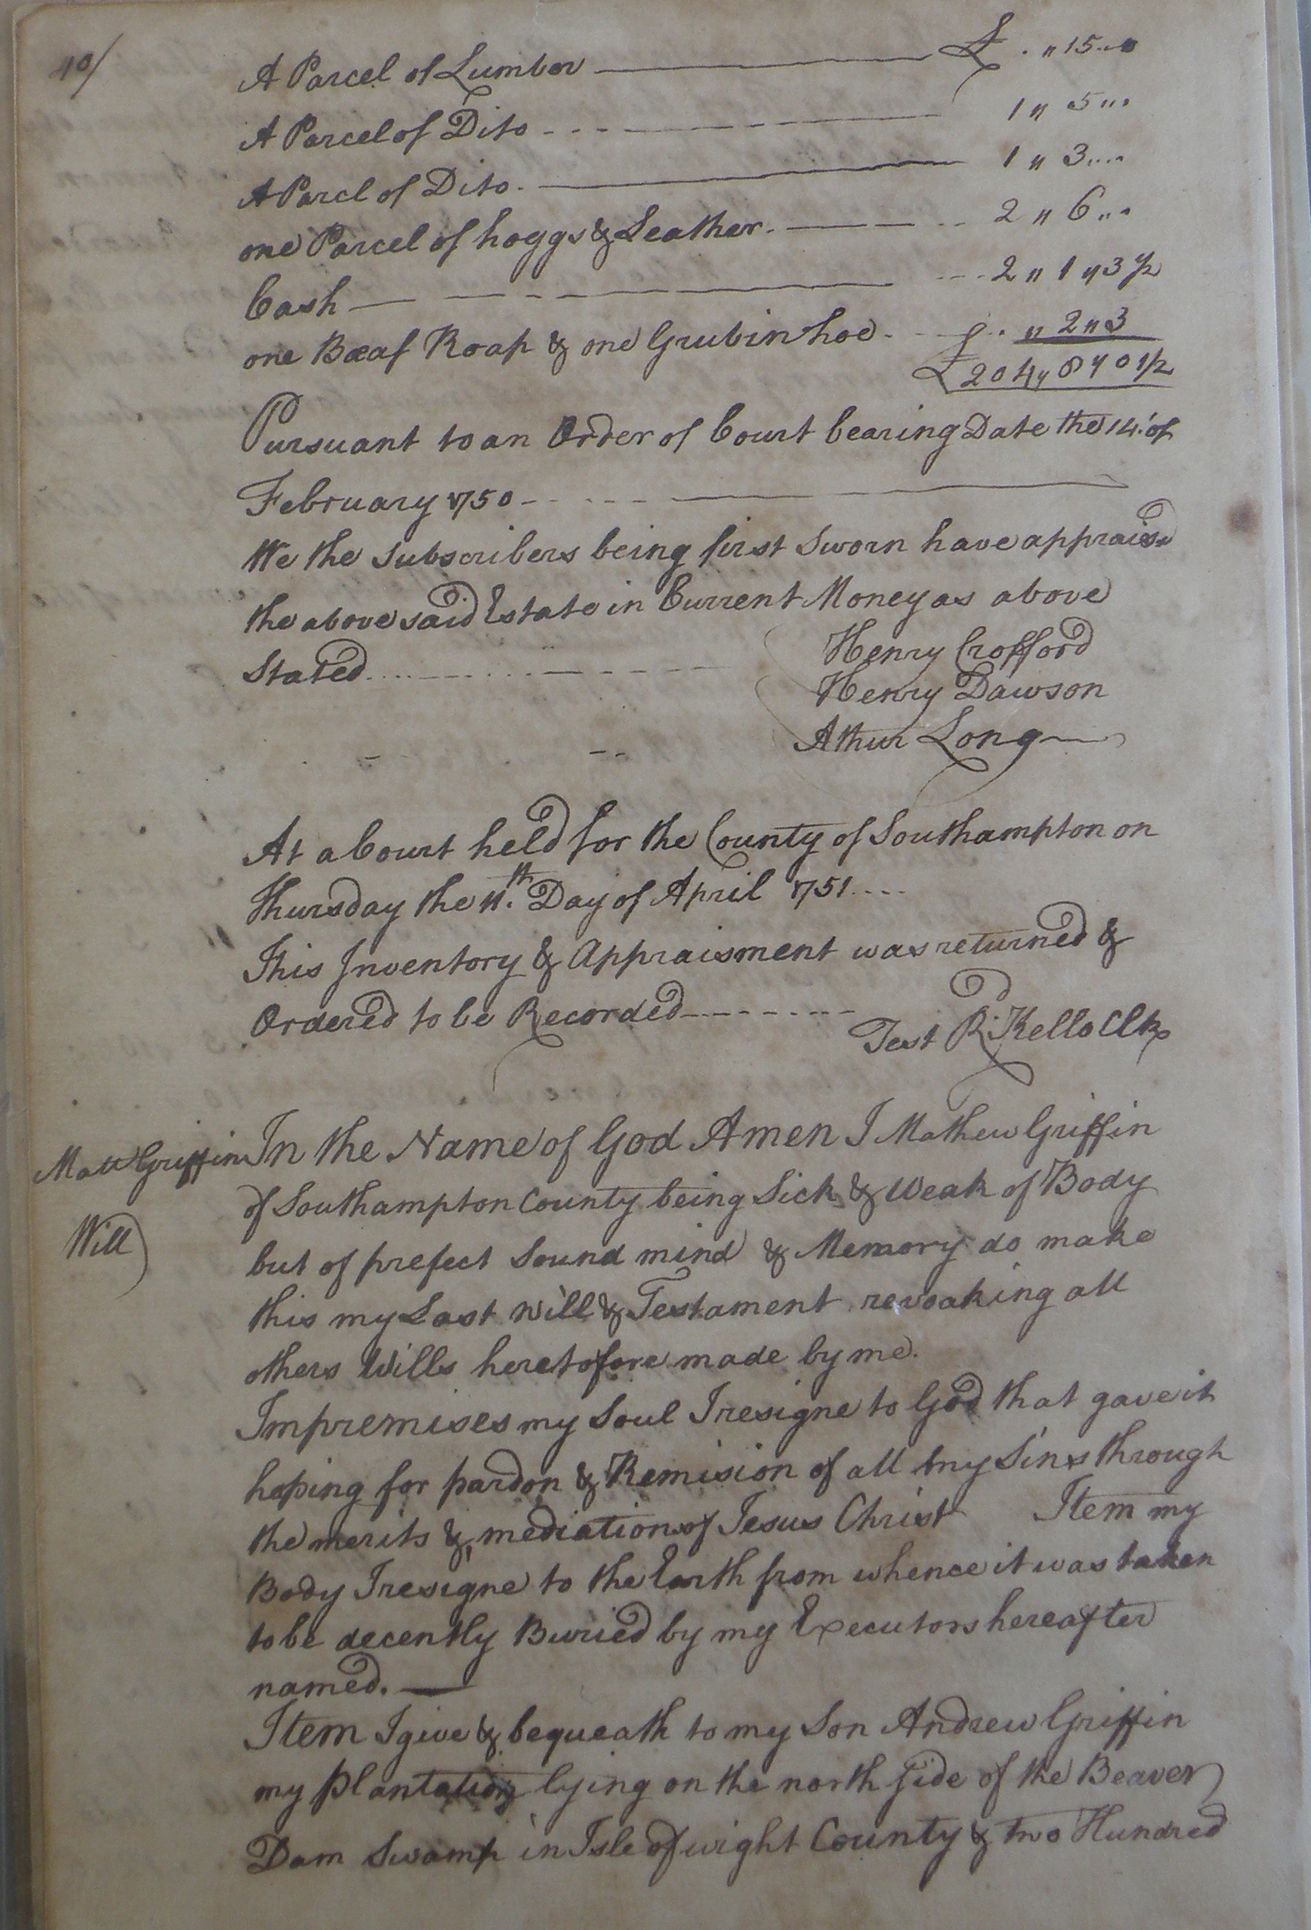 40/
A Parcel of Lumber £ . " 15 .. 0
A Parcel of Dito 1 " 5 " .
A Parcl of Dito. 1 " 3 ....
one Parcel of hoggs & Leather. 2 " 6 .. .
Cash 2 " 1 " 3 1/2
one Baeaf Roap & one Grubin hoe £ .. " 2 " 3
£ 204 " 8 " 0 1/2
Pursuant to an Order of Court bearing Date the 14. of
February 1750
We the Subscribers being first Sworn have appraisd
the above said Estate in Current Money as above
Stated
Henry Crofford
Henry Dawson
Athur Long
At a Court held for the County of Southampton on
Thursday the 11.th Day of April 1751....
This Inventory & Appraisment was returned &
Ordered to be Recorded
Test R: Kello Clk
Matt Griffins
Will
In the Name of God Amen I Mathew Griffin
of Southampton County being Sick & Weak of Body
but of prefect Sound mind & Memory do make
this my Last Will & Testament revoaking all
others Wills heretofore made by me.
Impremises my Soul I resigne to God that gave it
hoping for pardon & Remision of all my Sins through
the merits & mediation of Jesus Christ Item my
Body I resigne to the Earth from whence it was taken
to be decently Buried by my Executors hereafter
named.
Item I give & bequeath to my Son Andrew Griffin
my Plantation lying on the north Side of the Beaver
Dam Swamp in Isle of wight County & two Hundred